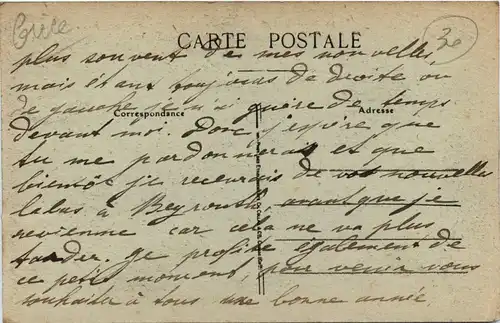 Brice
30
CARTE POSTALE
plus souvent de mes nouvelles,
mais étant toujours de droite ou
de gauche je n'ai guère de temps
Correspondance
Adresse
devant moi. Donc j'espère que
tu me pardonneras et que
bientôt je recevrais de vos nouvelles
à Beyrouth, avant que je
revienne car cela ne va plus
tarder. Je profite également de
ce petit moment, pour venir vous
souhaiter à tous une bonne année,